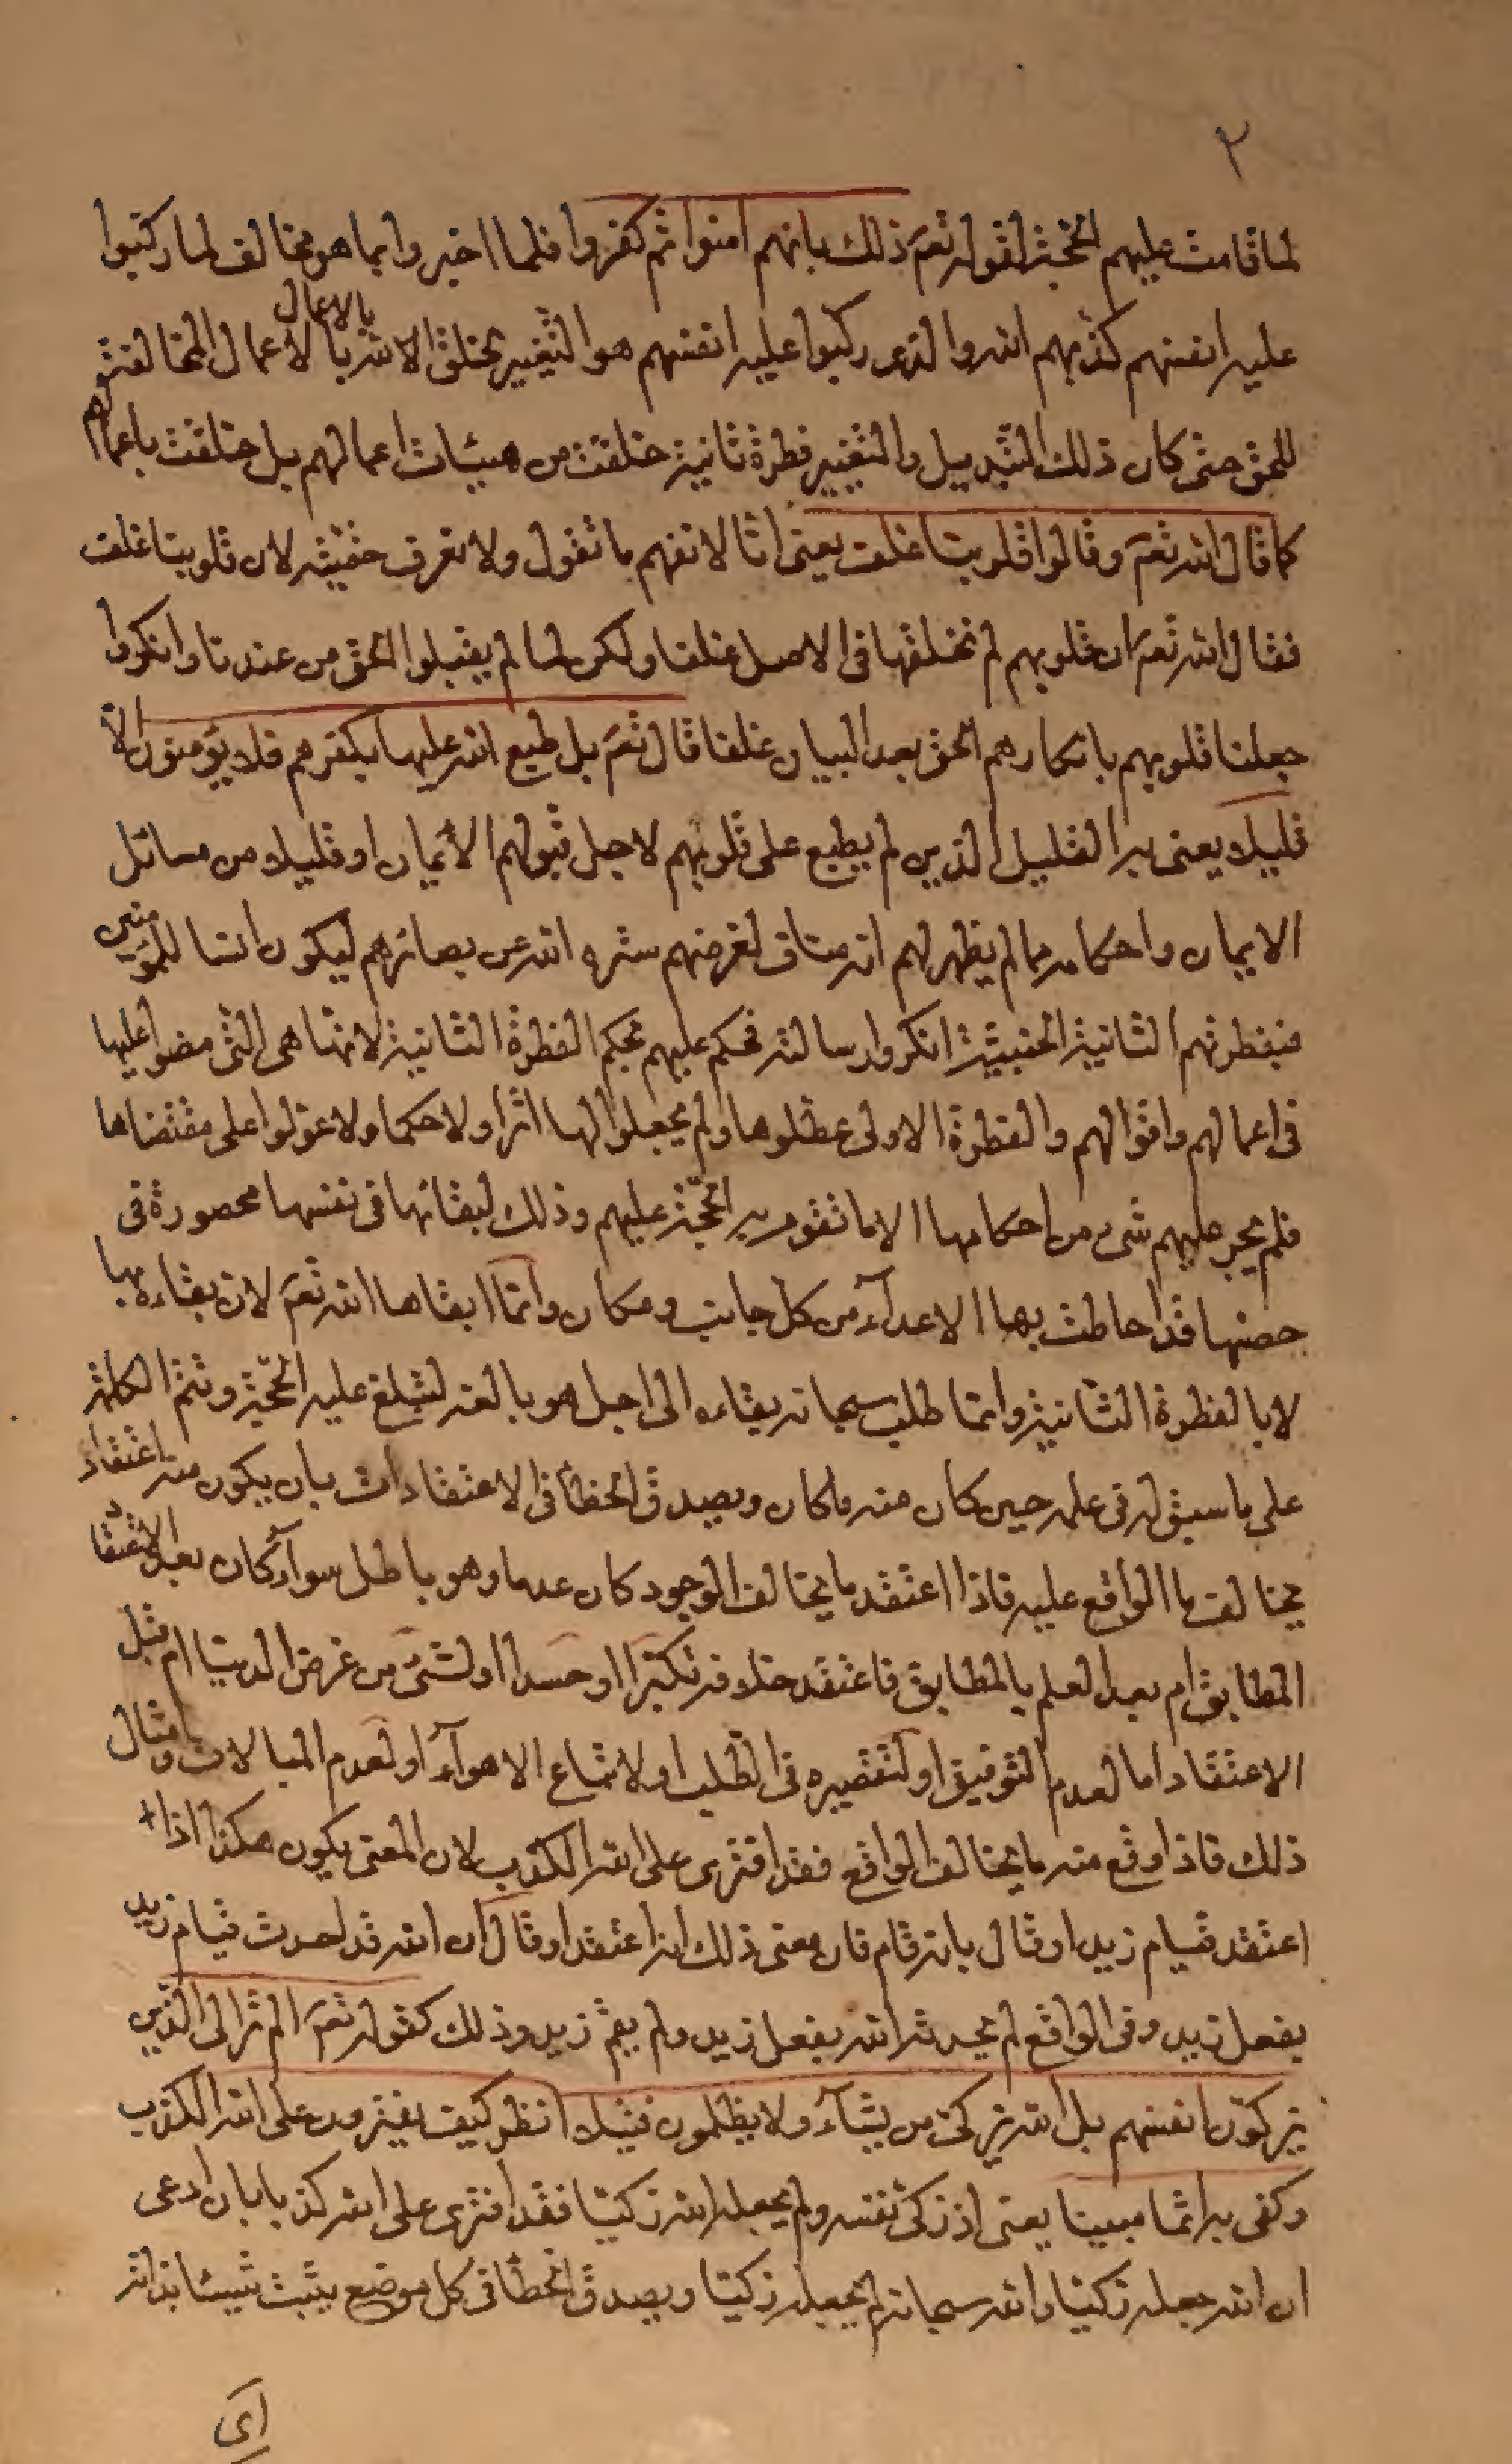 ٢
لما قامت عليهم الحجة لقوله تعم ذلك بانهم امنوا ثم كفروا فلما اخبروا بما هو مخالف لما ركبوا
عليه انفسهم كذبهم الله والذى ركبوا عليه انفسهم هو التغيير لخلق الله بالاعمال المخالفة
بالاعمال
للحق حتى كان ذلك التبديل والتغيير فطرة ثانية خلقت من هيئات اعمالهم بل خلقت باعمالهم
كما قال الله تعم وقالوا قلوبنا غلف يعنى انا لا نفهم ما تقول ولا نعرف حقيته لان قلوبنا غلف
فقال الله تعم ان قلوبهم لم نخلقها فى الاصل غلفا ولكن لما لم يقبلوا الحق من عندنا وانكروا
جعلنا قلوبهم بانكارهم الحق بعد البيان غلفا قال تعم بل طبع الله عليها بكفرهم فلا يؤمنون الا
قليلا يعنى به القليل الذين لم يطبع على قلوبهم لاجل قبولهم الأيمان او قليلا من مسائل
الايمان واحكامه مما لم يظهر لهم انه مناف لغرضهم ستره الله عن بصائرهم ليكون انسا للمؤمنين
فبفطرتهم الثانية الخبيثة انكروا رسالته فحكم عليهم بحكم الفطرة الثانية لانها هى التى مضوا عليها
فى اعمالهم واقوالهم والفطرة الاولى عطلوها ولم يجعلوا لها اثرا ولا حكما ولا عولوا على مقتضاها
فلم يجر عليهم شىء من احكامها الا ما تقوم به الحجة عليهم وذلك لبقائها فى نفسها محصورة فى
حصنها قد احاطت بها الاعدآء من كل جانب ومكان وانما ابقاها الله تعم لان بقاءه بها
لا بالفطرة الثانية وانما طلب سبحانه بقاءه الى اجل هو بالغه لتبلغ عليه الحجة وتتم الكلمة
على ما سبق له فى علمه حين كان منه ما كان ويصدق الخطأ فى الاعتقادات بان يكون منه اعتقاد
يخالف ما الواقع عليه فاذا اعتقد ما يخالف الوجود كان عدما وهو باطل سوآء كان بعد الاعتقاد
المطابق ام بعد العلم بالمطابق فاعتقد خلافه تكبرا او حسدا او لشىء من غرض الدنيا ام قبل
الاعتقاد اما لعدم التوفيق او لتقصيره فى الطلب او لاتباع الاهوآء او لعدم المبالات وامثال
ذلك فاذا وقع منه ما يخالف الواقع فقد افترى على الله الكذب لان المعنى يكون هكذا اذا
اعتقد قيام زيد او قال بانه قام فان معنى ذلك انه اعتقد او قال ان الله قد احدث قيام زيد
بفعل زيد وفى الواقع لم يحدث الله بفعل زيد ولم يقم زيد وذلك كقوله تعم الم تر الى الذين
يزكون انفسهم بل الله يزكى من يشآء ولا يظلمون فتيلا انظر كيف يفترون على الله الكذب
وكفى به اثما مبينا يعنى اذا زكى نفسه ولم يجعله الله زكيا فقد افترى على الله كذبا بان ادعى
ان الله جعله زكيا والله سبحانه لم يجعله زكيا ويصدق الخطأ فى كل موضع يثبت شيئا بذاته
اى